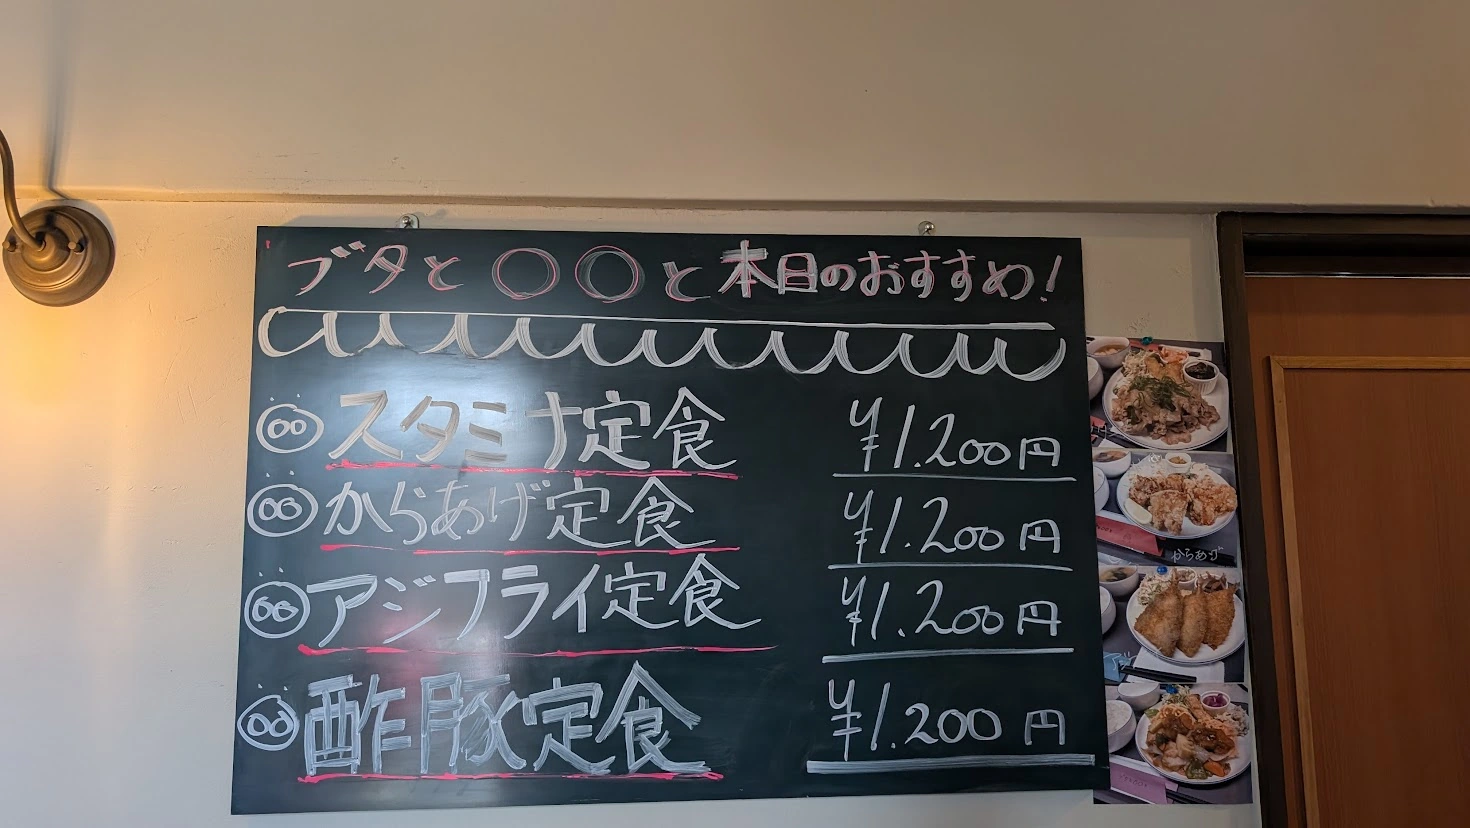 ブタと〇〇と本日のおすすめ!
スタミナ定食 ¥1.200円
からあげ定食 ¥1.200円
アジフライ定食 ¥1.200円
酢豚定食 ¥1.200円
からあげ